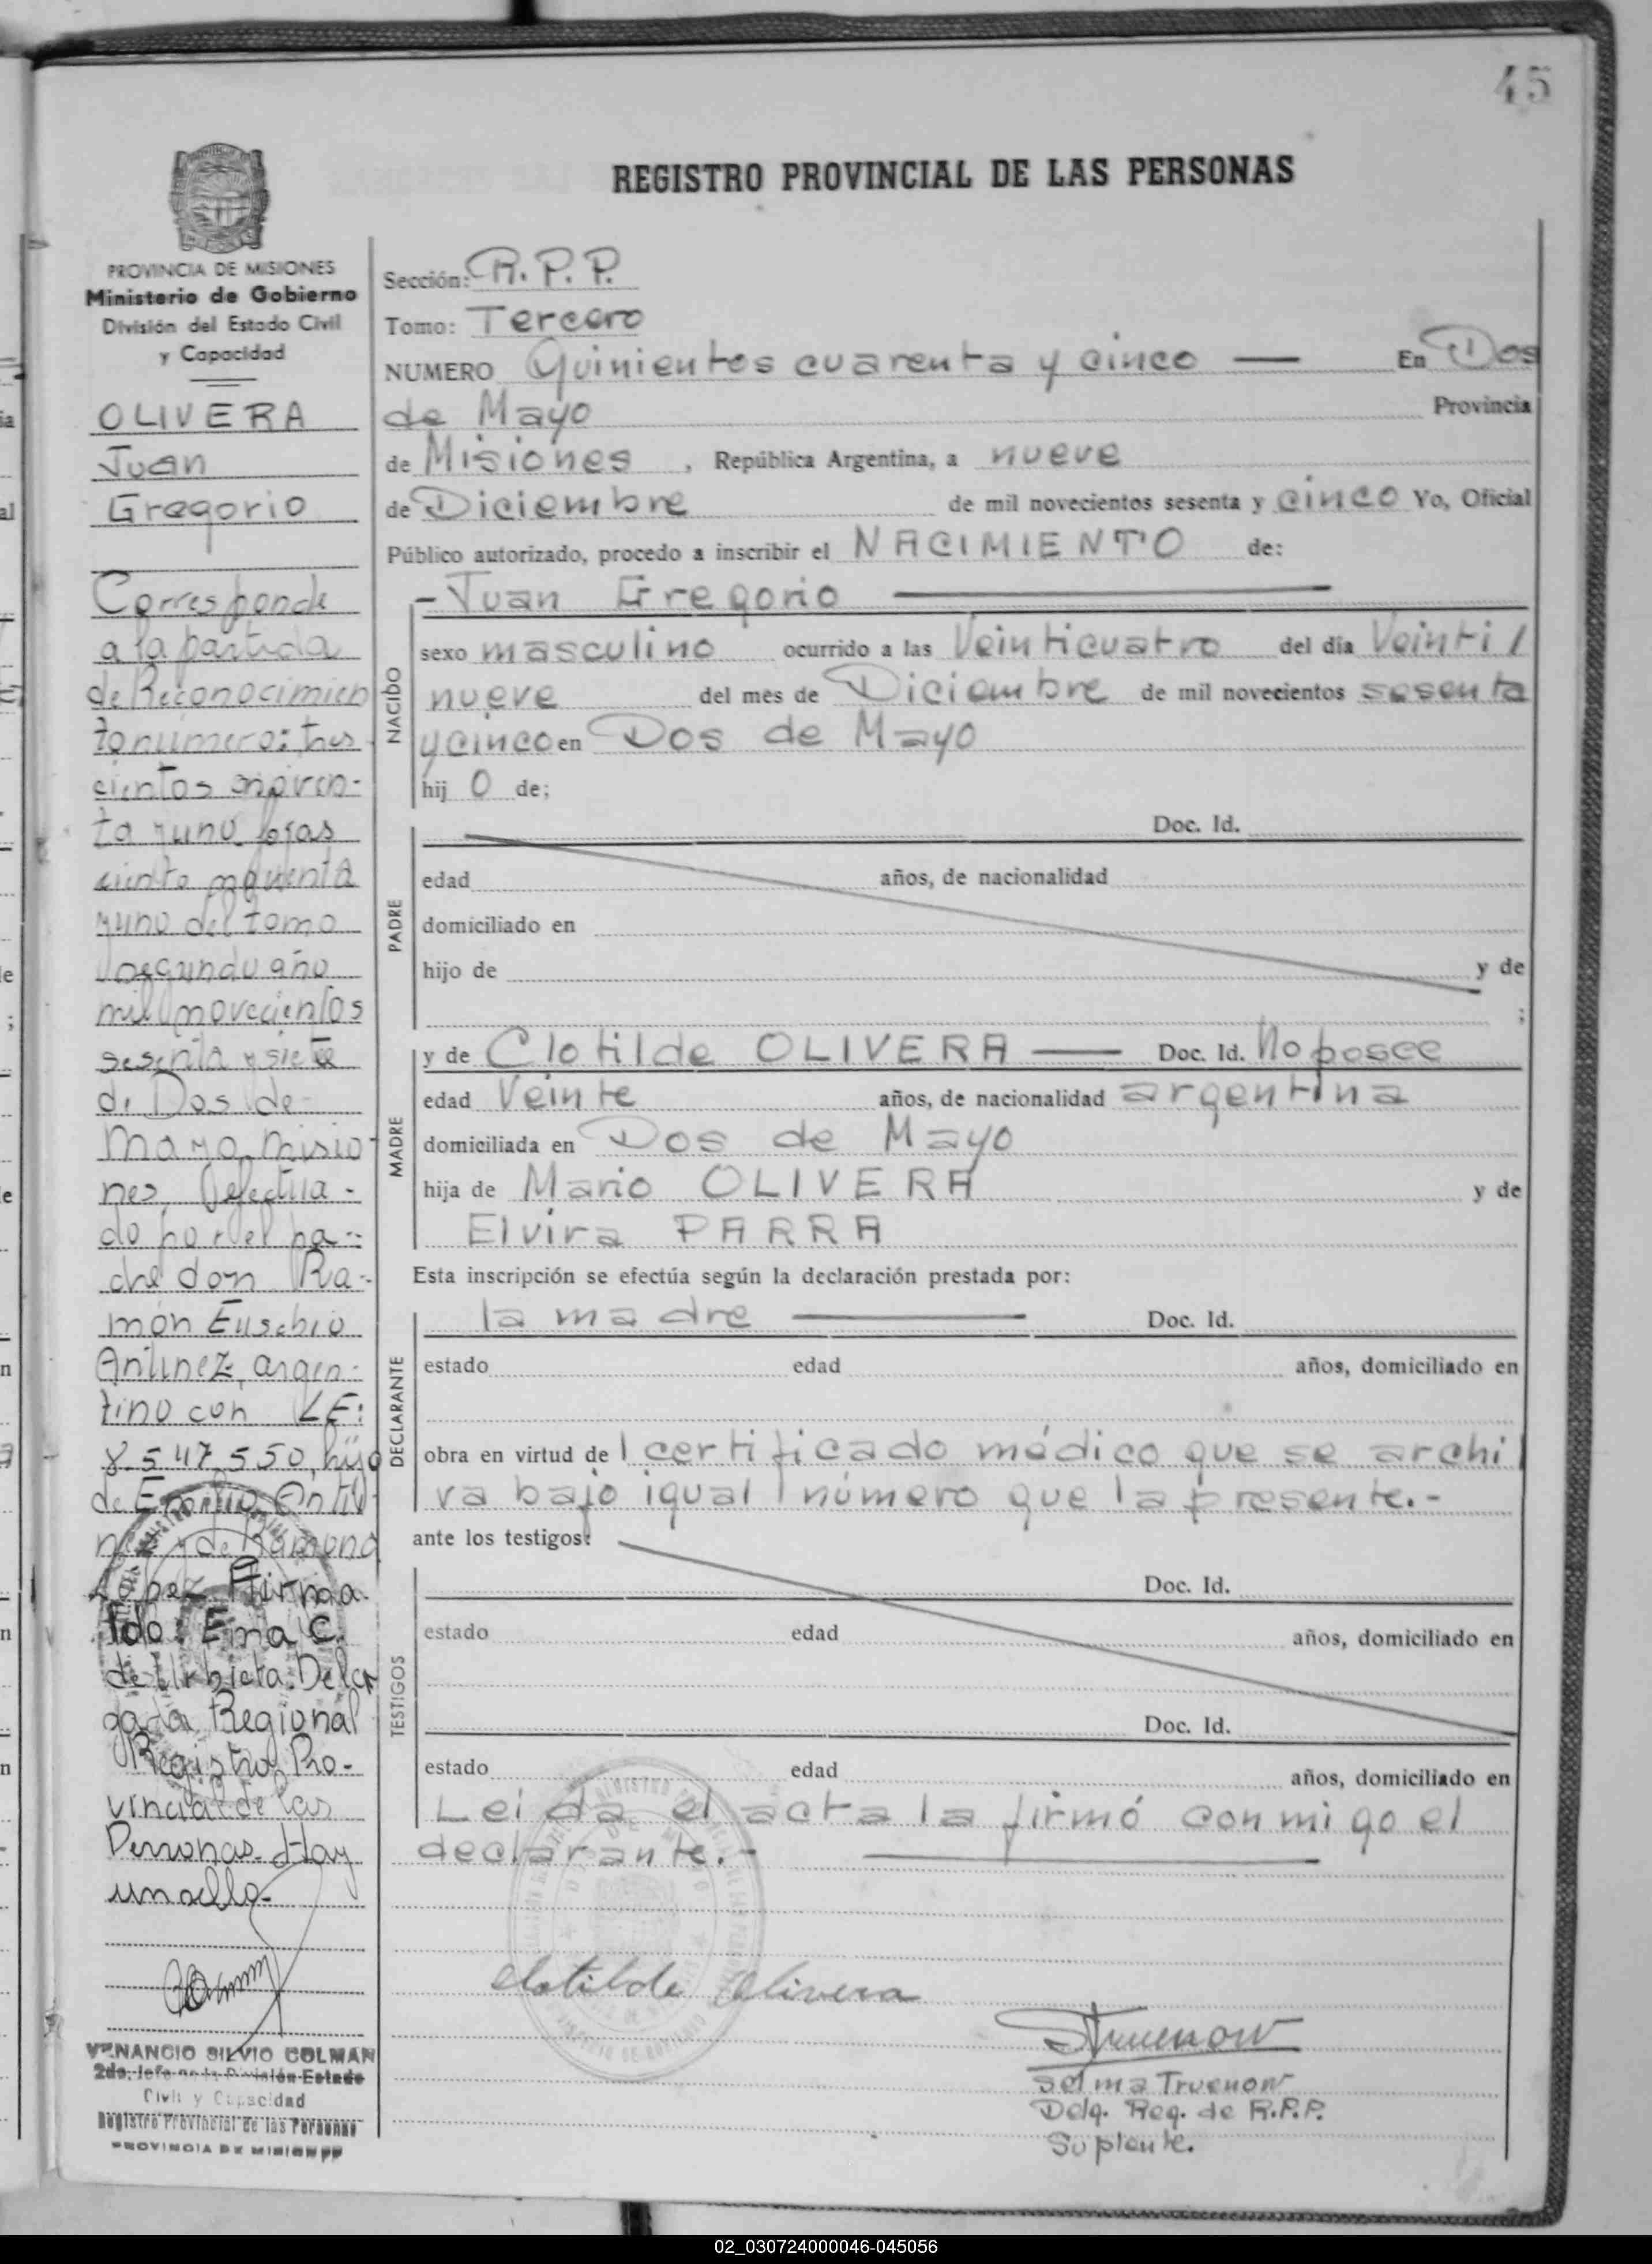 45
REGISTRO PROVINCIAL DE LAS PERSONAS
PROVINCIA DE MISIONES
Ministerio de Gobierno
División del Estado Civil
y Capacidad
OLIVERA
Juan
Gregorio
Corresponde
a la partida
de Reconocimien
to número: tres
cientos noven-
ta y uno. fojas
ciento noventa
y uno del tomo
segundo año
mil novecientos
sesenta y siete
de Dos de
Mayo, Misio
nes, efectua-
do por el pa-
dre don Ra-
món Eusebio
Antinez, argen-
tino con LE:
8.547.550, hijo
de
y de Ramona
López Firma
do: Ema C.
de Urbieta. Dele
gada Regional
Registro Pro-
vincial de las
Personas. Hay
un sello.-
VENANCIO SILVIO COLMAN
2do. Jefe de la División Estado
Civil y Capacidad
Registro Provincial de las Personas
PROVINCIA DE MISIONES
Sección: R.P.P.
Tomo: Tercero
NUMERO Quinientos cuarenta y cinco — En Dos
de Mayo Provincia
de Misiones, República Argentina, a nueve
de Diciembre de mil novecientos sesenta y cinco Yo, Oficial
Público autorizado, procedo a inscribir el NACIMIENTO de:
-Juan Gregorio —
NACIDO
sexo masculino ocurrido a las Veinticuatro del día Veinti/
nueve del mes de Diciembre de mil novecientos sesenta
y cinco en Dos de Mayo
hij o de;
PADRE
Doc. Id.
edad años, de nacionalidad
domiciliado en
hijo de y de
;
MADRE
y de Clotilde OLIVERA — Doc. Id. No posee
edad Veinte años, de nacionalidad argentina
domiciliada en Dos de Mayo
hija de Mario OLIVERA y de
Elvira PARRA
Esta inscripción se efectúa según la declaración prestada por:
DECLARANTE
la madre — Doc. Id.
estado edad años, domiciliado en
obra en virtud de l certificado médico que se archi/
va bajo igual número que la presente.-
ante los testigos:
TESTIGOS
Doc. Id.
estado edad años, domiciliado en
Doc. Id.
estado edad años, domiciliado en
Leida el acta la firmó conmigo el
declarante.- —
Clotilde Olivera
STruenow
Selma Truenow
Delg. Reg. de R.P.P.
Suplente.
02_030724000046-045056